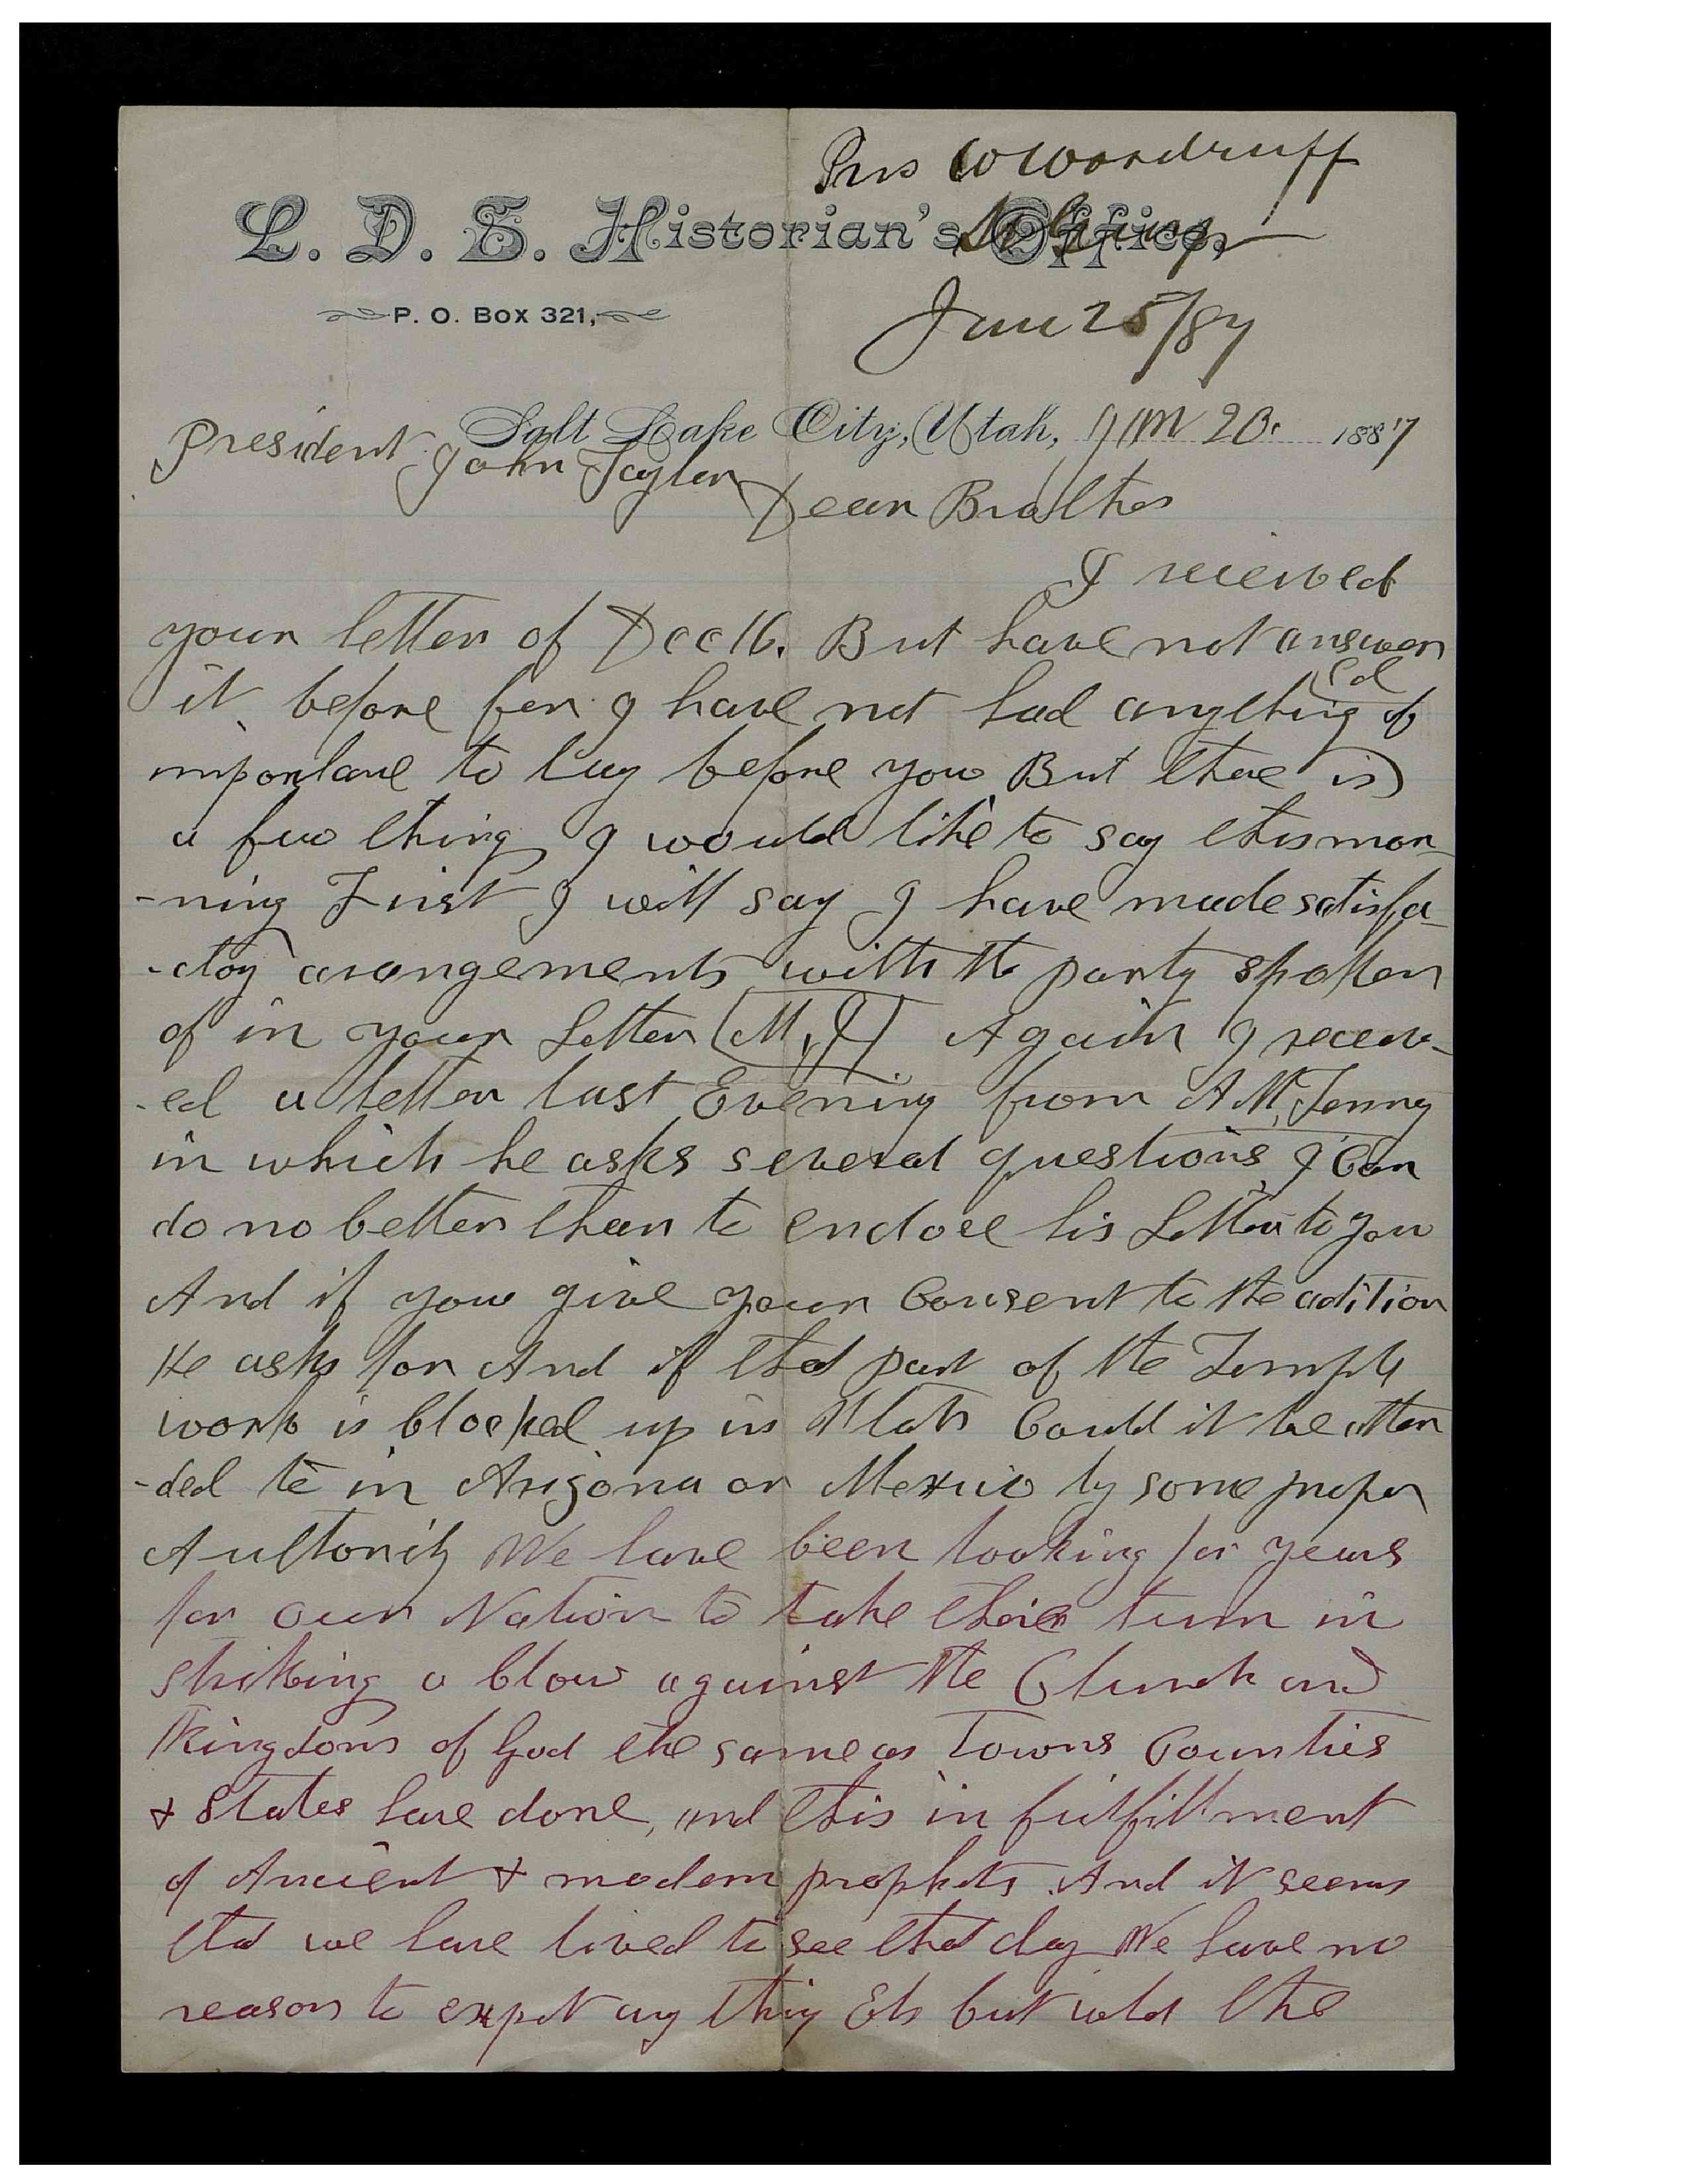 Pres W Woodruff
L. D. S. Historian's Office,
P. O. Box 321,
Jan 25/87
Salt Lake City, Utah, Jan 20. 1887
President John Taylor
Dear Brother
I recieved
your letter of Dec 16. But have not answer
ed
it before for I have not had anything of
importance to lay before you But there is
a few things I would like to say this mor-
-ning First I will say I have made satisfa-
-ctoy arangements with the party spoken
of in your Letter (M, J) Again I receiv-
-ed a letter last Evening from A M, Tenny
in which he asks several questions I Can
do no better than to encloee his Letter to you
And if you give your Consent to the adition
He asks for And if that part of the Temple
work is blocked up in Utah Could it be atten
-ded to in Arizona or Mexico by some proper
Aultority We have been looking for years
for our Nation to take their turn in
striking a blow against the Church and
Kingdom of God the same as Towns Counties
& States have done, and this in fulfillment
of Ancient & modern prophets. And it seems
that we have lived to see that day We have no
reason to expect any thing Els but what the